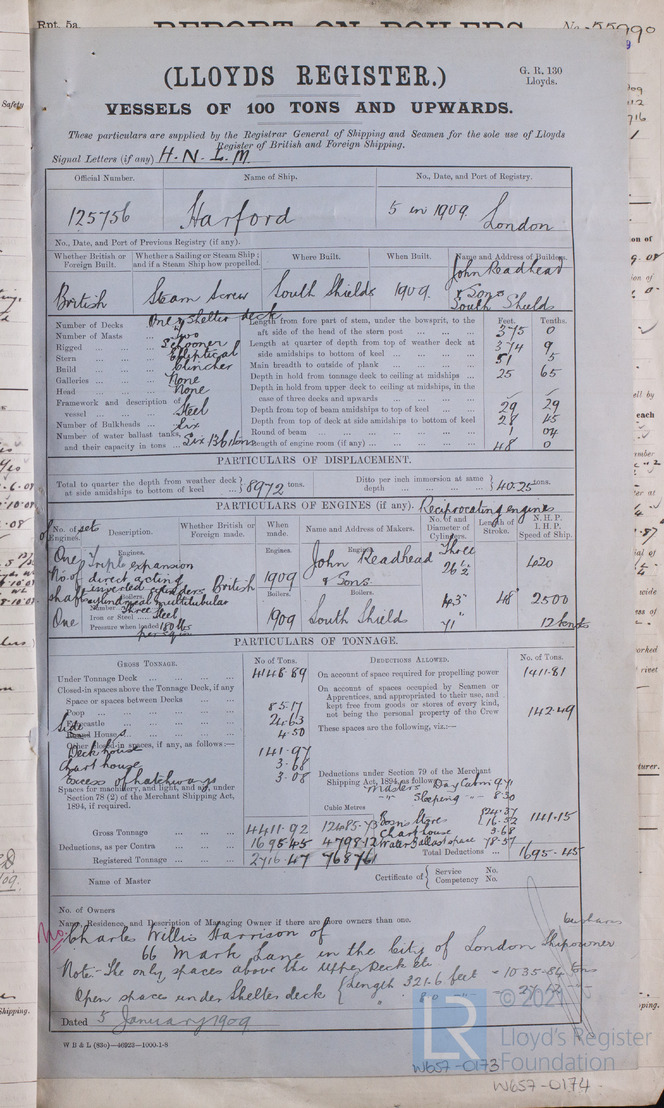 Rpt. 5a. REPORT ON BOILERS No. 55990
(LLOYDS REGISTER.)
G. R. 130
Lloyds.
VESSELS OF 100 TONS AND UPWARDS.
These particulars are supplied by the Registrar General of Shipping and Seamen for the sole use of Lloyds
Register of British and Foreign Shipping.
Signal Letters (if any) H.N.L.M.
Official Number. Name of Ship. No., Date, and Port of Registry.
125756 Harford 5 in 1909. London
No., Date, and Port of Previous Registry (if any).
Whether British or Foreign Built. Whether a Sailing or Steam Ship; and if a Steam Ship how propelled. Where Built. When Built. Name and Address of Builders.
British Steam Screw South Shields 1909. John Readhead & Sons South Shields
Number of Decks One & Shelter deck
Number of Masts Two
Rigged Schooner
Stern Elliptical
Build Clincher
Galleries None
Head None
Framework and description of vessel Steel
Number of Bulkheads Six
Number of water ballast tanks, and their capacity in tons Six 1361 tons
Feet. Tenths.
Length from fore part of stem, under the bowsprit, to the aft side of the head of the stern post 375 0
Length at quarter of depth from top of weather deck at side amidships to bottom of keel 374 9
Main breadth to outside of plank 51 5
Depth in hold from tonnage deck to ceiling at midships 25 65
Depth in hold from upper deck to ceiling at midships, in the case of three decks and upwards
Depth from top of beam amidships to top of keel 29 29
Depth from top of deck at side amidships to bottom of keel 28 45
Round of beam 1 04
Length of engine room (if any) 48 0
PARTICULARS OF DISPLACEMENT.
Total to quarter the depth from weather deck at side amidships to bottom of keel 8972 tons.
Ditto per inch immersion at same depth 40.25 tons.
PARTICULARS OF ENGINES (if any). Reciprocating engines
No. of set of Engines. Description. Whether British or Foreign made. When made. Name and Address of Makers. No. of and Diameter of Cylinders. Length of Stroke. N.H.P. I.H.P. Speed of Ship.
Engines. Engines. Engines.
One Triple expansion direct acting inverted cylinders British 1909 John Readhead & Sons Three 26½ 420
No. of shafts Boilers. Boilers. Boilers.
One cylindrical multitubular 43" 48" 2500
Number Three
Iron or Steel Steel 1909 South Shields 71" 12 knots
Pressure when loaded 180 lbs per sq in
PARTICULARS OF TONNAGE.
GROSS TONNAGE. No of Tons.
Under Tonnage Deck 4148.89
Closed-in spaces above the Tonnage Deck, if any
Space or spaces between Decks
Poop 85.17
Forecastle 24.63
Side Houses 4.50
Other closed-in spaces, if any, as follows:—
Deck house 141.97
Chart house 3.68
Excess of hatchways 3.08
Spaces for machinery, and light, and air, under Section 78 (2) of the Merchant Shipping Act, 1894, if required.
Cubic Metres
Gross Tonnage 4411.92 12485.73
Deductions, as per Contra 1695.45 4798.12
Registered Tonnage 2716.47 7687.61
DEDUCTIONS ALLOWED. No. of Tons.
On account of space required for propelling power 1411.81
On account of spaces occupied by Seamen or Apprentices, and appropriated to their use, and kept free from goods or stores of every kind, not being the personal property of the Crew 142.49
These spaces are the following, viz.:—
Deductions under Section 79 of the Merchant Shipping Act, 1894, as follows:
Masters Day Cabin 9.41
" Sleeping " 8.30
Bosns Stores 24.37
16.52
Chart house 3.68
Water Ballast space 78.87
141.15
Total Deductions 1695.45
Name of Master Certificate of Service No. Competency No.
No. of Owners
Name, Residence, and Description of Managing Owner if there are more owners than one.
Charles Willis Harrison of
66 Mark Lane in the City of London Shipowner
Note:- The only spaces above the Upper Deck etc
Open spaces under Shelter deck Length 321.6 feet = 1035.84 tons
" 8.0 " = 27.12 "
Dated 5 January 1909
W B & L (83o)—46923—1000-1-8
LR © 2021
Lloyd's Register
Foundation
W657-0173
W657-0174